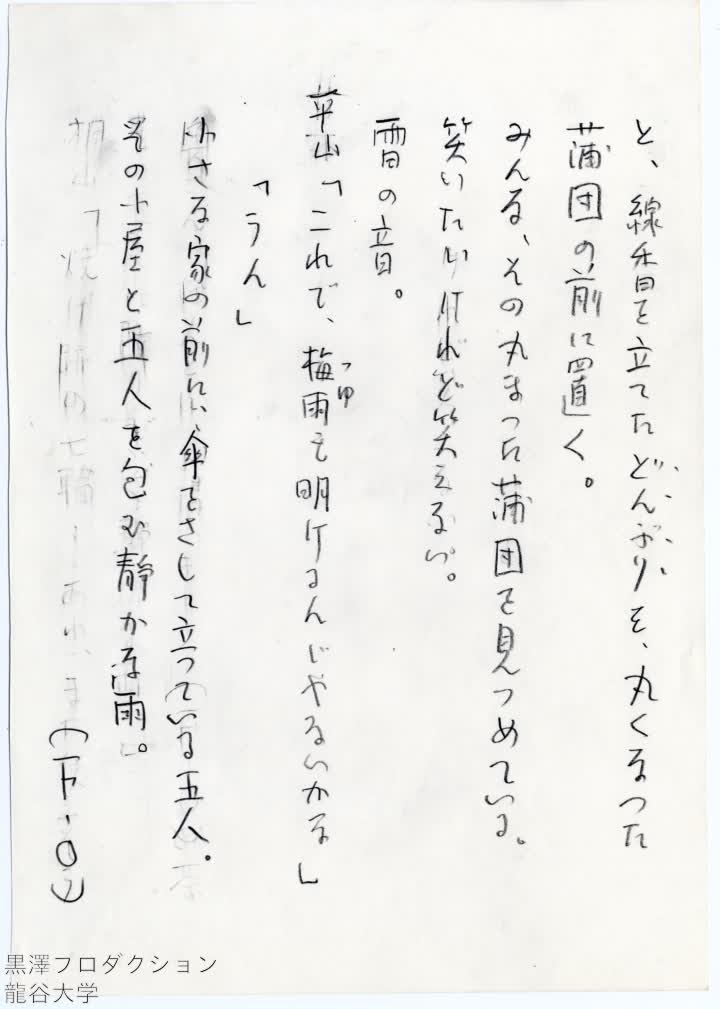 と、線香を立てたどんぶりを、丸くなった
蒲団の前に置く。
みんな、その丸まった蒲団を見つめている。
笑いたいけれど笑えない。
雷の音。
平山「これで、梅雨も明けるんじゃないかな」
つゆ
「うん」
小さな家の前に、傘をさして立っている五人。
その小屋と五人を包む静かな雨。
(F・O)
黒澤プロダクション
龍谷大学